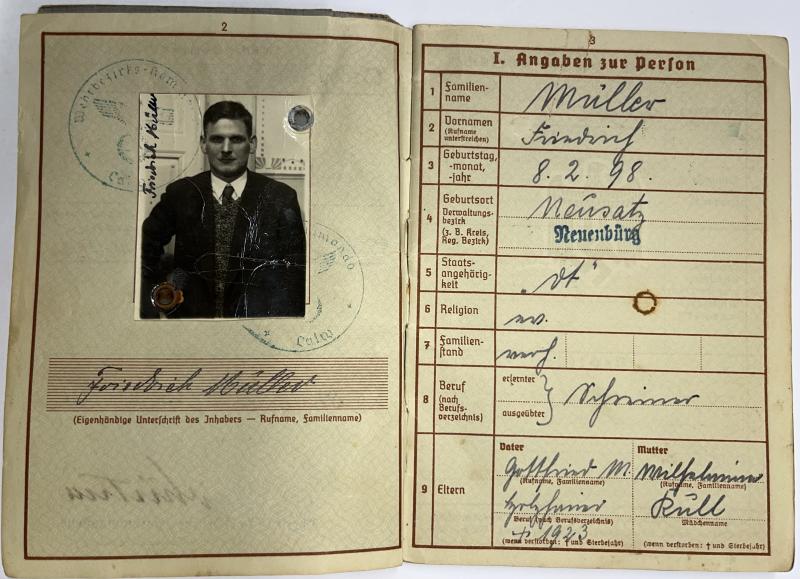 2
Wehrbezirks-Kom
Calw
Friedrich Müller
mmando
Calw
Friedrich Müller
(Eigenhändige Unterschrift des Inhabers — Rufname, Familienname)
3
I. Angaben zur Person
1 Familienname Müller
2 Vornamen (Rufname unterstreichen) Friedrich
3 Geburtstag, -monat, -jahr 8. 2. 98.
4 Geburtsort Neusatz
Verwaltungsbezirk (z. B. Kreis, Reg. Bezirk) Neuenbürg
5 Staatsangehörigkeit „dt“
6 Religion ev.
7 Familienstand verh.
8 Beruf (nach Berufsverzeichnis) erlernter } Schreiner
ausgeübter
9 Eltern
Vater
Gottfried M.
(Rufname, Familienname)
Holzhauer
Beruf (nach Berufsverzeichnis)
† 1923
(wenn verstorben: † und Sterbejahr)
Mutter
Wilhelmine
(Rufname, Familienname)
Küll
Mädchenname
(wenn verstorben: † und Sterbejahr)